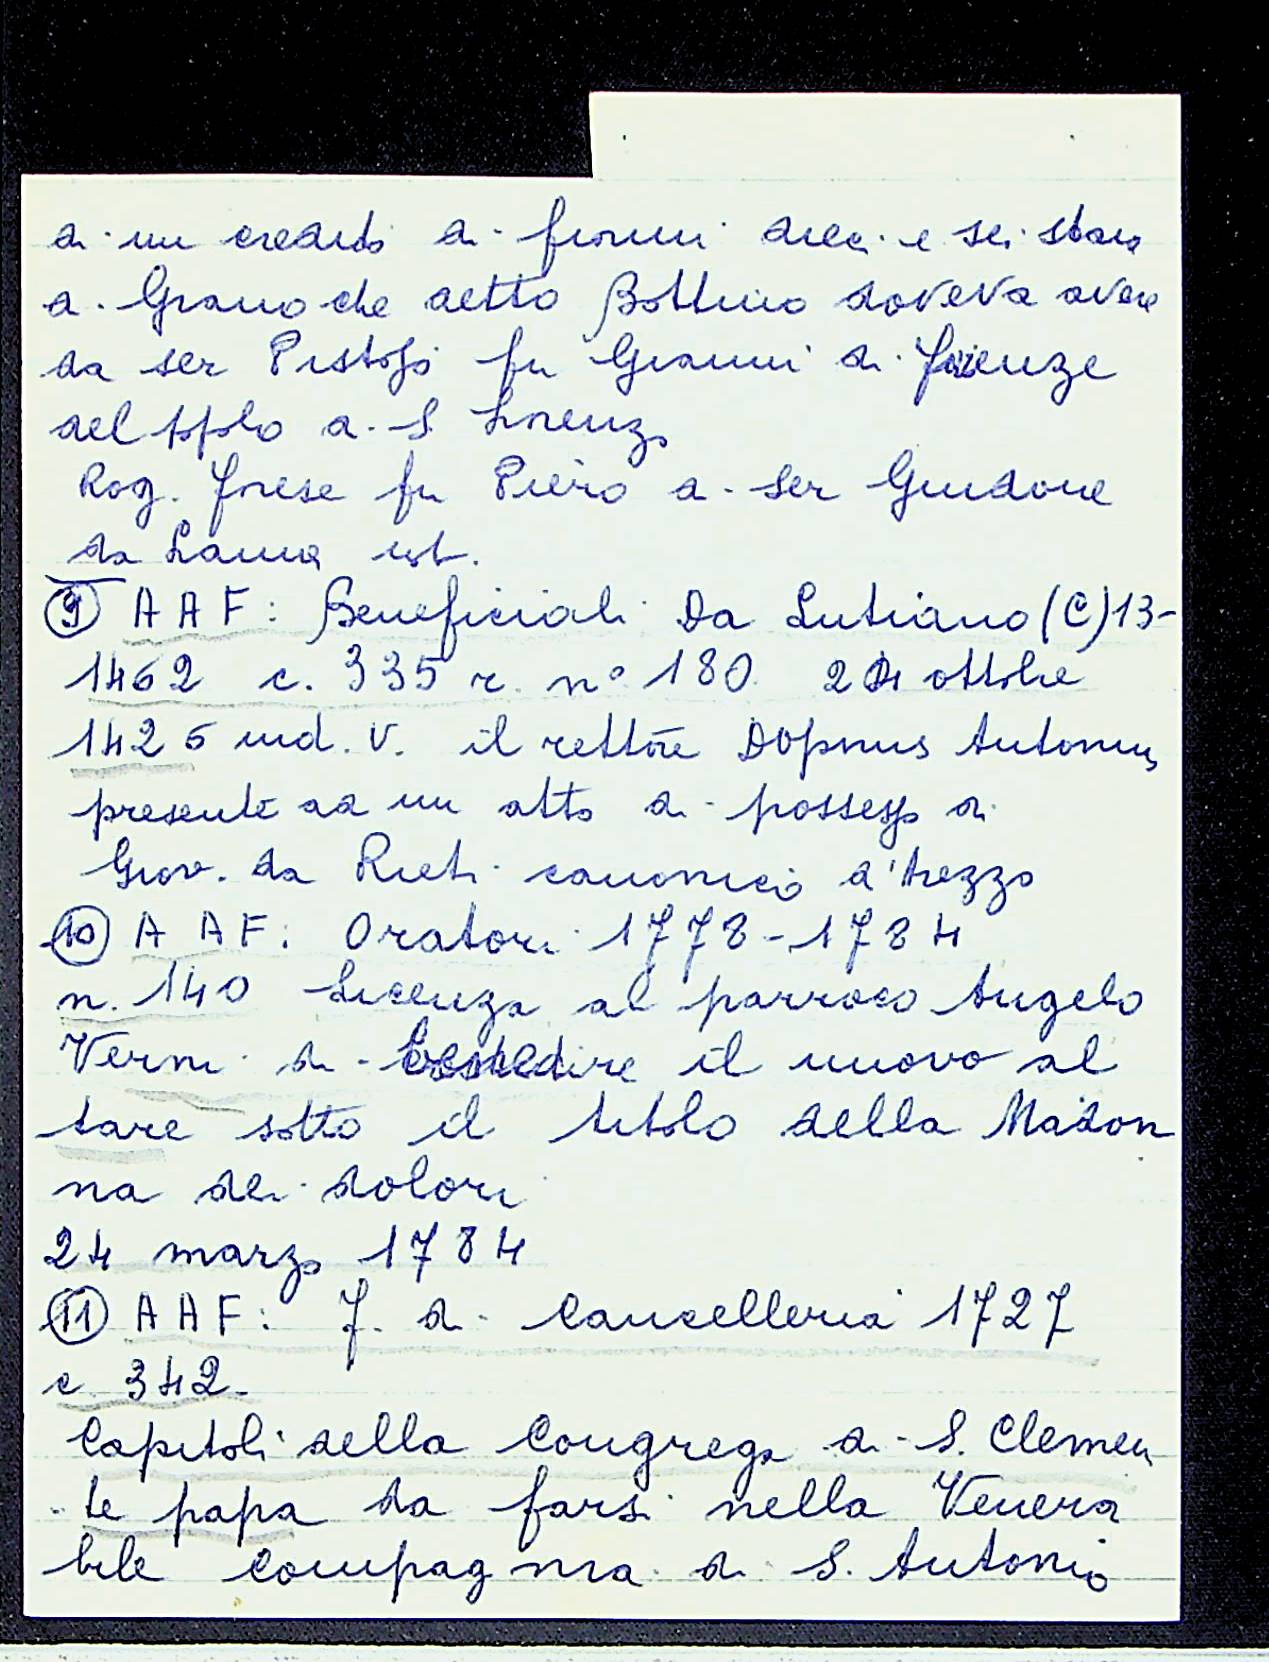 di un credito di fiorini dieci e sei staia
di Grano che detto Bottino doveva avere
da ser Pistofo fu Gianni di Firenze
del pplo di S. Lorenzo
Rog. Frese fu Piero di ser Guidone
da
⑨ AAF: Beneficiali Da Lutiano (C) 13-
1462 c. 335 r. n° 180. 24 ottobre
1426 ind. V. il rettore Dopnus Antonius
presente ad un atto di possesso di
Giov. da Rieti canonico d'Arezzo
⑩ AAF: Oratori 1778-1784
n. 140 Licenza al parroco Angelo
Verni di benedire il nuovo al
tare sotto il titolo della Madon
na dei dolori
24 marzo 1784
⑪ AAF: F. di Cancelleria 1727
c. 342.
Capitoli della Congrega di S. Clemen
te papa da farsi nella Venera
bile Compagnia di S. Antonio